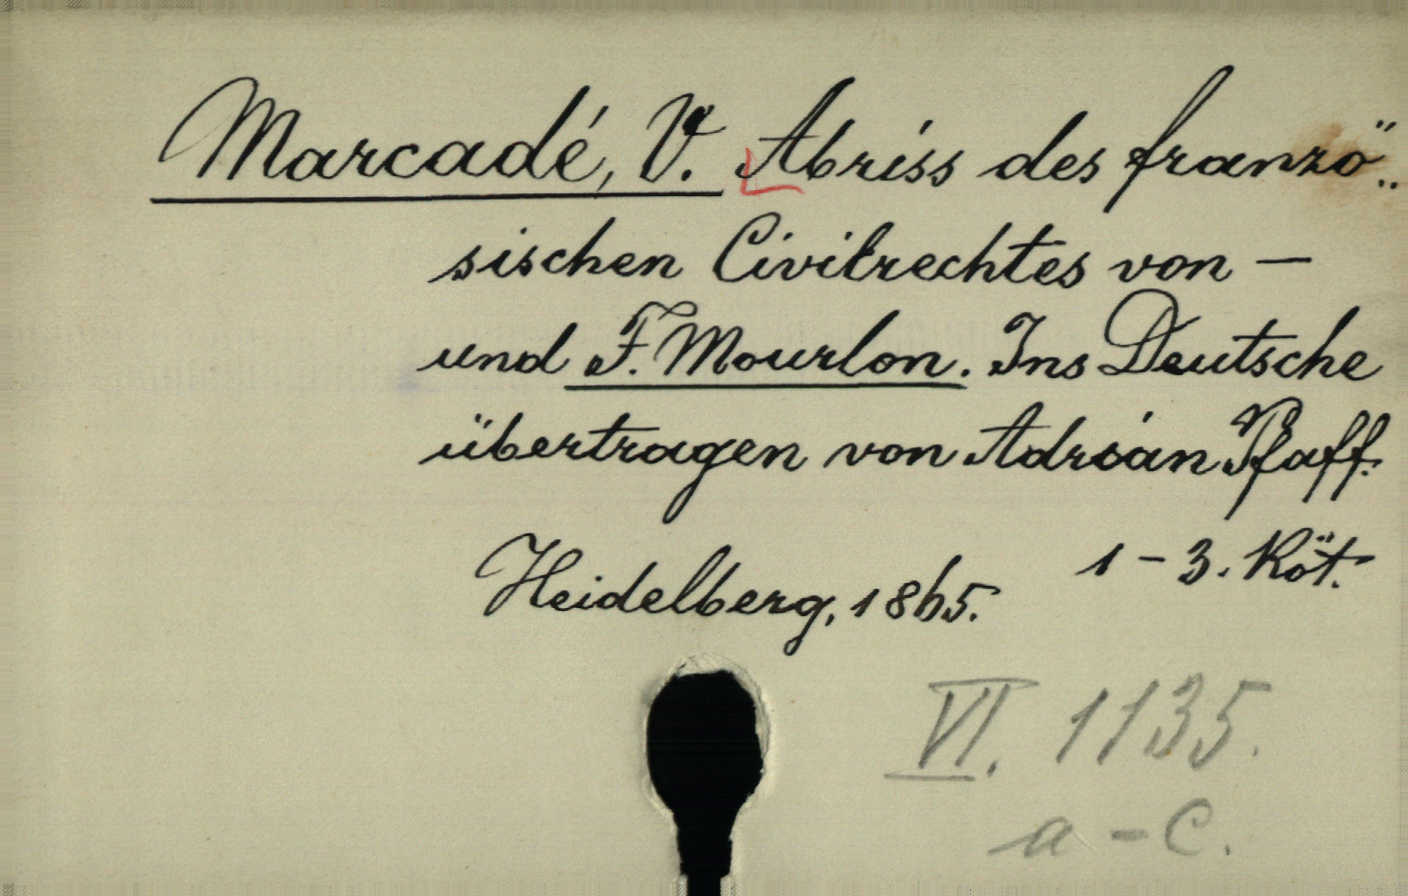 Marcadé, V. Abriss des franzö„
sischen Civilrechtes von —
und F. Mourlon. Ins Deutsche
übertragen von Adrian Pfaff.
1-3. Köt.
Heidelberg, 1865.
VI. 1135.
a-c.